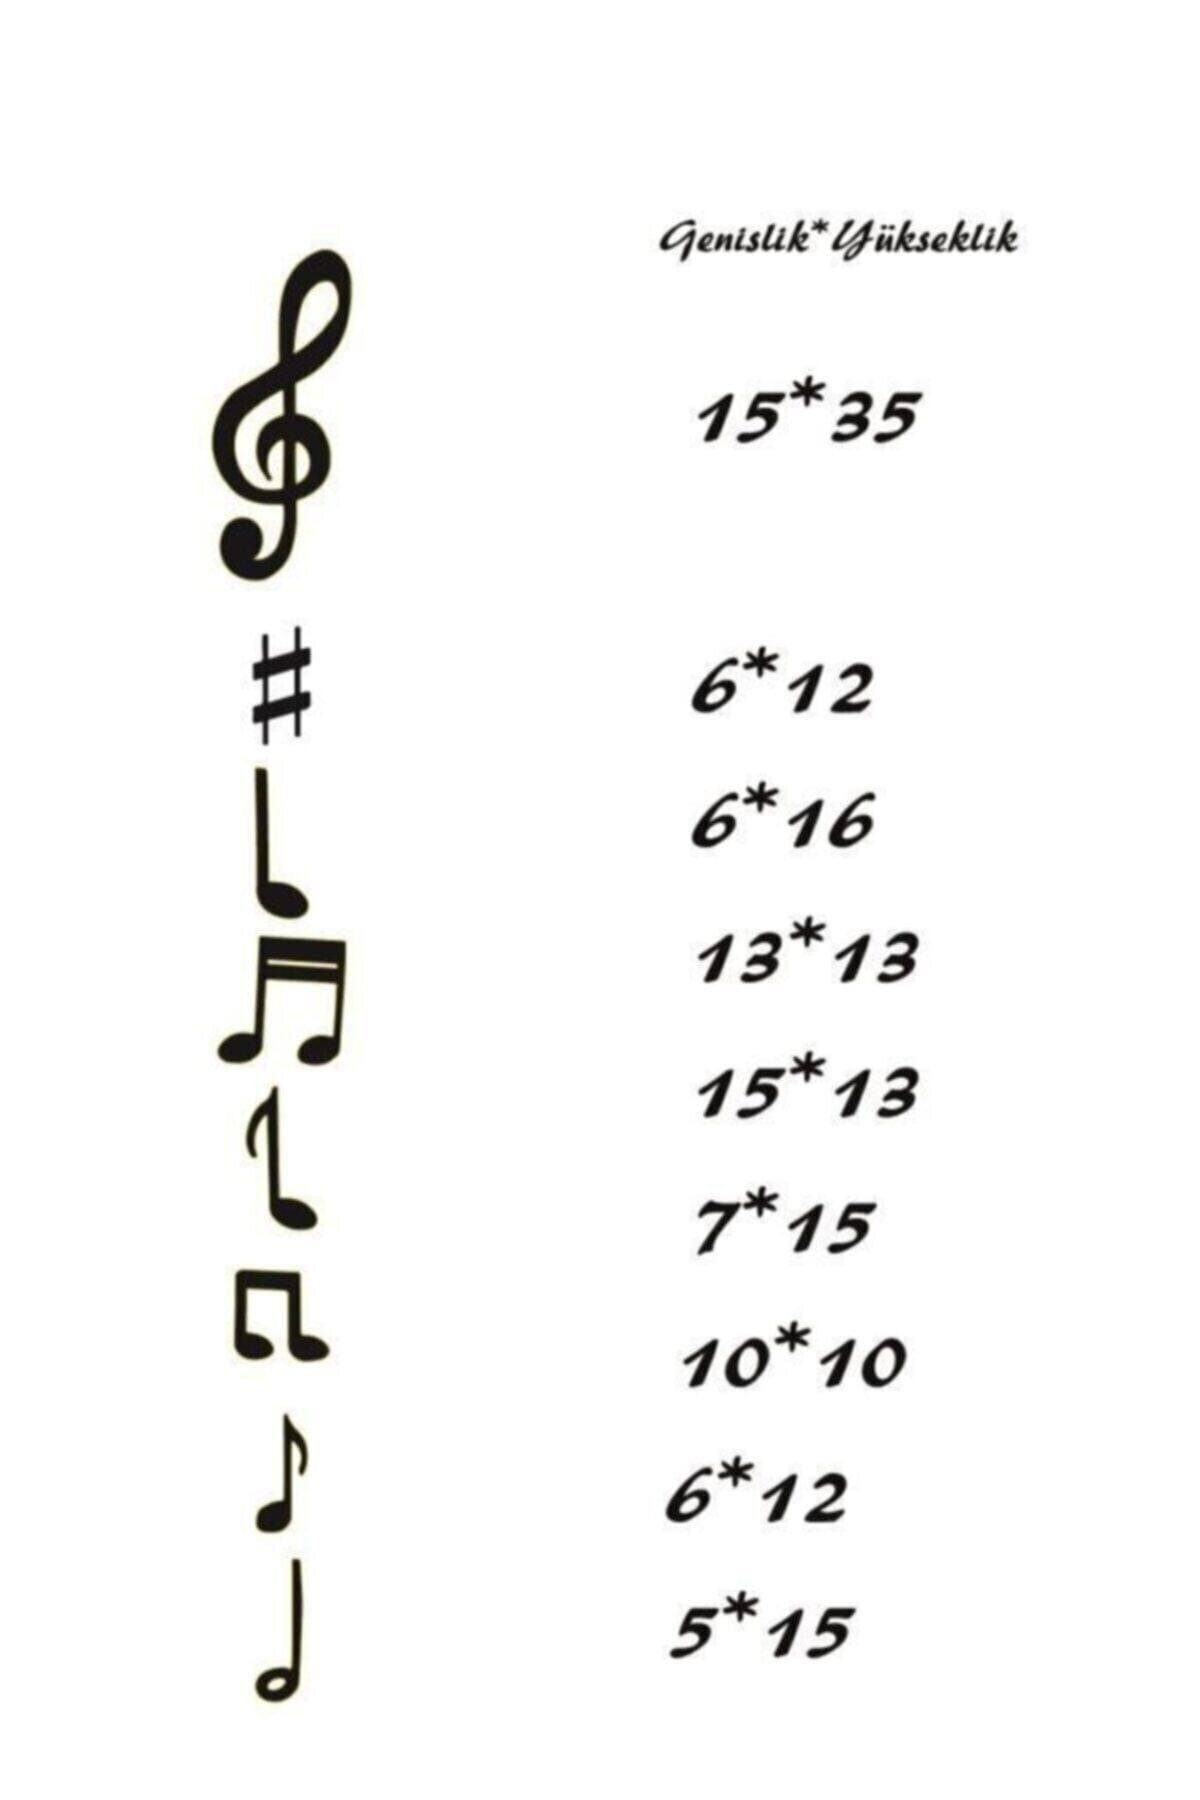 Genislik*Yükseklik
15*35
6*12
6*16
13*13
15*13
7*15
10*10
6*12
5*15